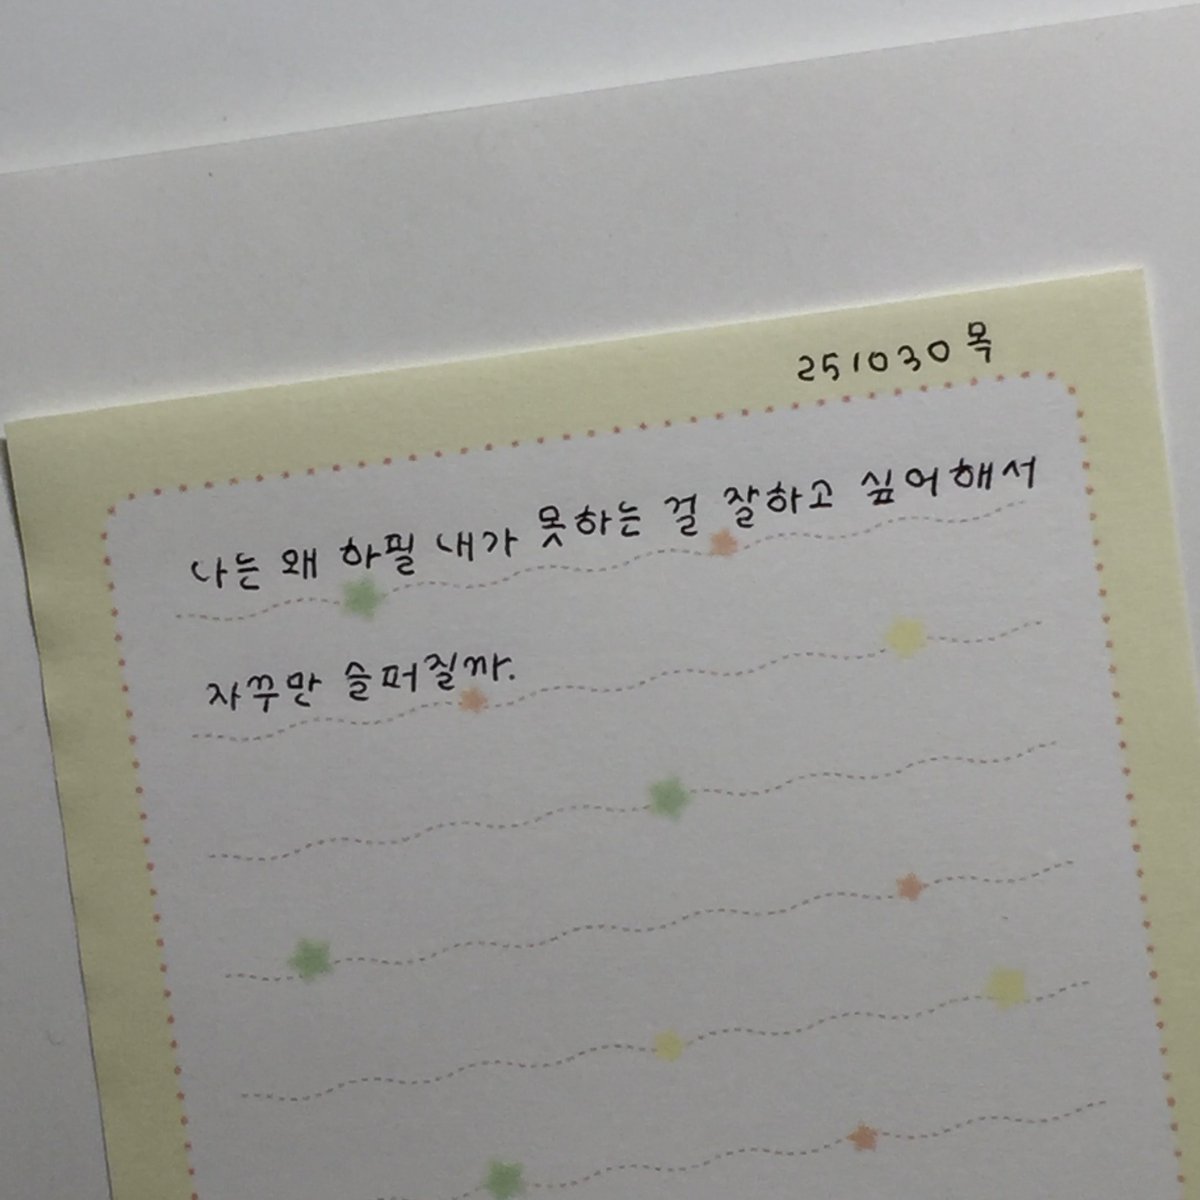 251030 목
나는 왜 하필 내가 못하는 걸 잘하고 싶어해서
자꾸만 슬퍼질까.